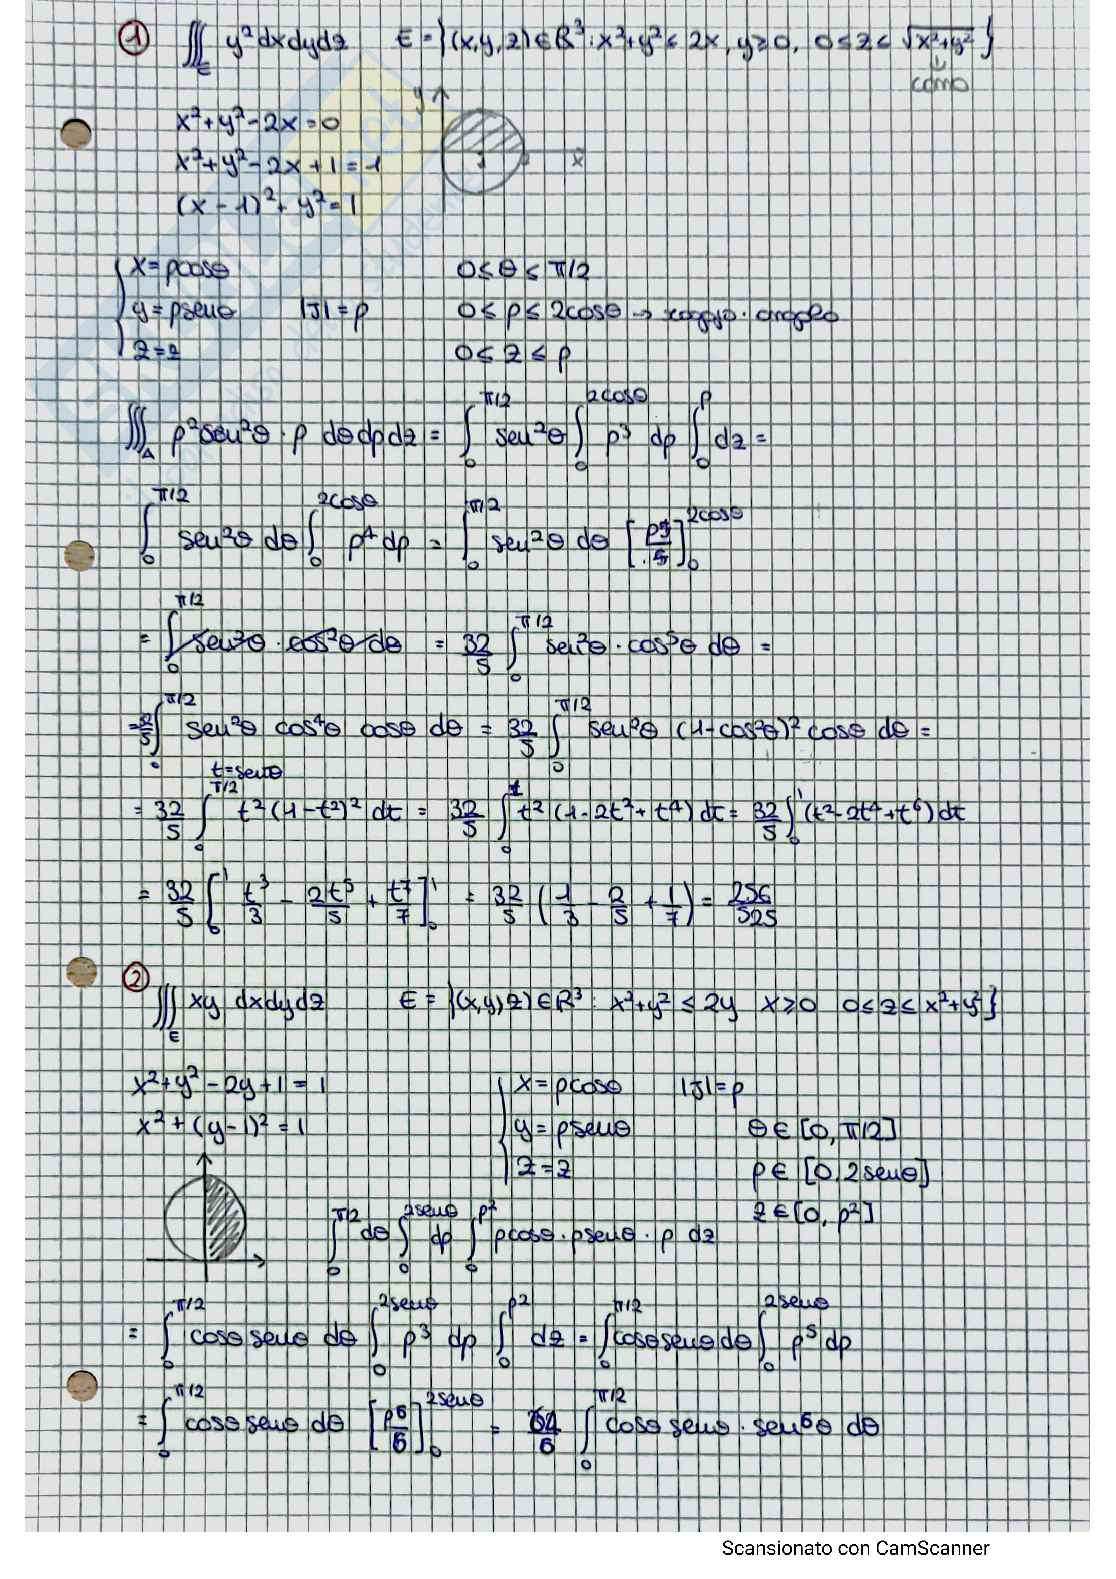 ① ∭_E y² dxdydz   E = {(x,y,z)∈R³: x²+y² ≤ 2x, y≥0, 0≤z≤ √(x²+y²)}
cono
x²+y²-2x=0
y
x²+y²-2x+1=1
1 x
(x-1)²+y²=1
{ x=ρcosθ   0≤θ≤π/2
y=ρsenθ   |J|=ρ   0≤ρ≤2cosθ → raggio · angolo
z=z   0≤z≤ρ
∭_A ρ²sen²θ·ρ dθdρdz = ∫_0^{π/2} sen²θ ∫_0^{2cosθ} ρ³ dρ ∫_0^ρ dz =
∫_0^{π/2} sen²θ dθ ∫_0^{2cosθ} ρ⁴dρ = ∫_0^{π/2} sen²θ dθ [ρ⁵/5]_0^{2cosθ}
= ∫_0^{π/2} sen²θ·cos²θ dθ = 32/5 ∫_0^{π/2} sen²θ·cos⁵θ dθ =
=32/5 ∫_0^{π/2} sen²θ cos⁴θ cosθ dθ = 32/5 ∫_0^{π/2} sen²θ (1-cos²θ)² cosθ dθ =
t=senθ
= 32/5 ∫_0^{π/2} t²(1-t²)² dt = 32/5 ∫_0^1 t²(1-2t²+t⁴)dt = 32/5 ∫_0^1 (t²-2t⁴+t⁶)dt
= 32/5 [t³/3 - 2t⁵/5 + t⁷/7]_0^1 = 32/5 (1/3 - 2/5 + 1/7) = 256/525
② ∭_E xy dxdydz   E = {(x,y,z)∈R³: x²+y² ≤ 2y   x≥0   0≤z≤x²+y²}
x²+y²-2y+1=1   { x=ρcosθ   |J|=ρ
x²+(y-1)²=1   y=ρsenθ   θ∈[0,π/2]
z=z   ρ∈[0,2senθ]
z∈[0,ρ²]
∫_0^{π/2} dθ ∫_0^{2senθ} dρ ∫_0^{ρ²} ρcosθ·ρsenθ·ρ dz
= ∫_0^{π/2} cosθsenθ dθ ∫_0^{2senθ} ρ³ dρ ∫_0^{ρ²} dz = ∫_0^{π/2} cosθsenθdθ ∫_0^{2senθ} ρ⁵dρ
= ∫_0^{π/2} cosθsenθ dθ [ρ⁶/6]_0^{2senθ} = 64/6 ∫_0^{π/2} cosθsenθ·sen⁶θ dθ
Scansionato con CamScanner